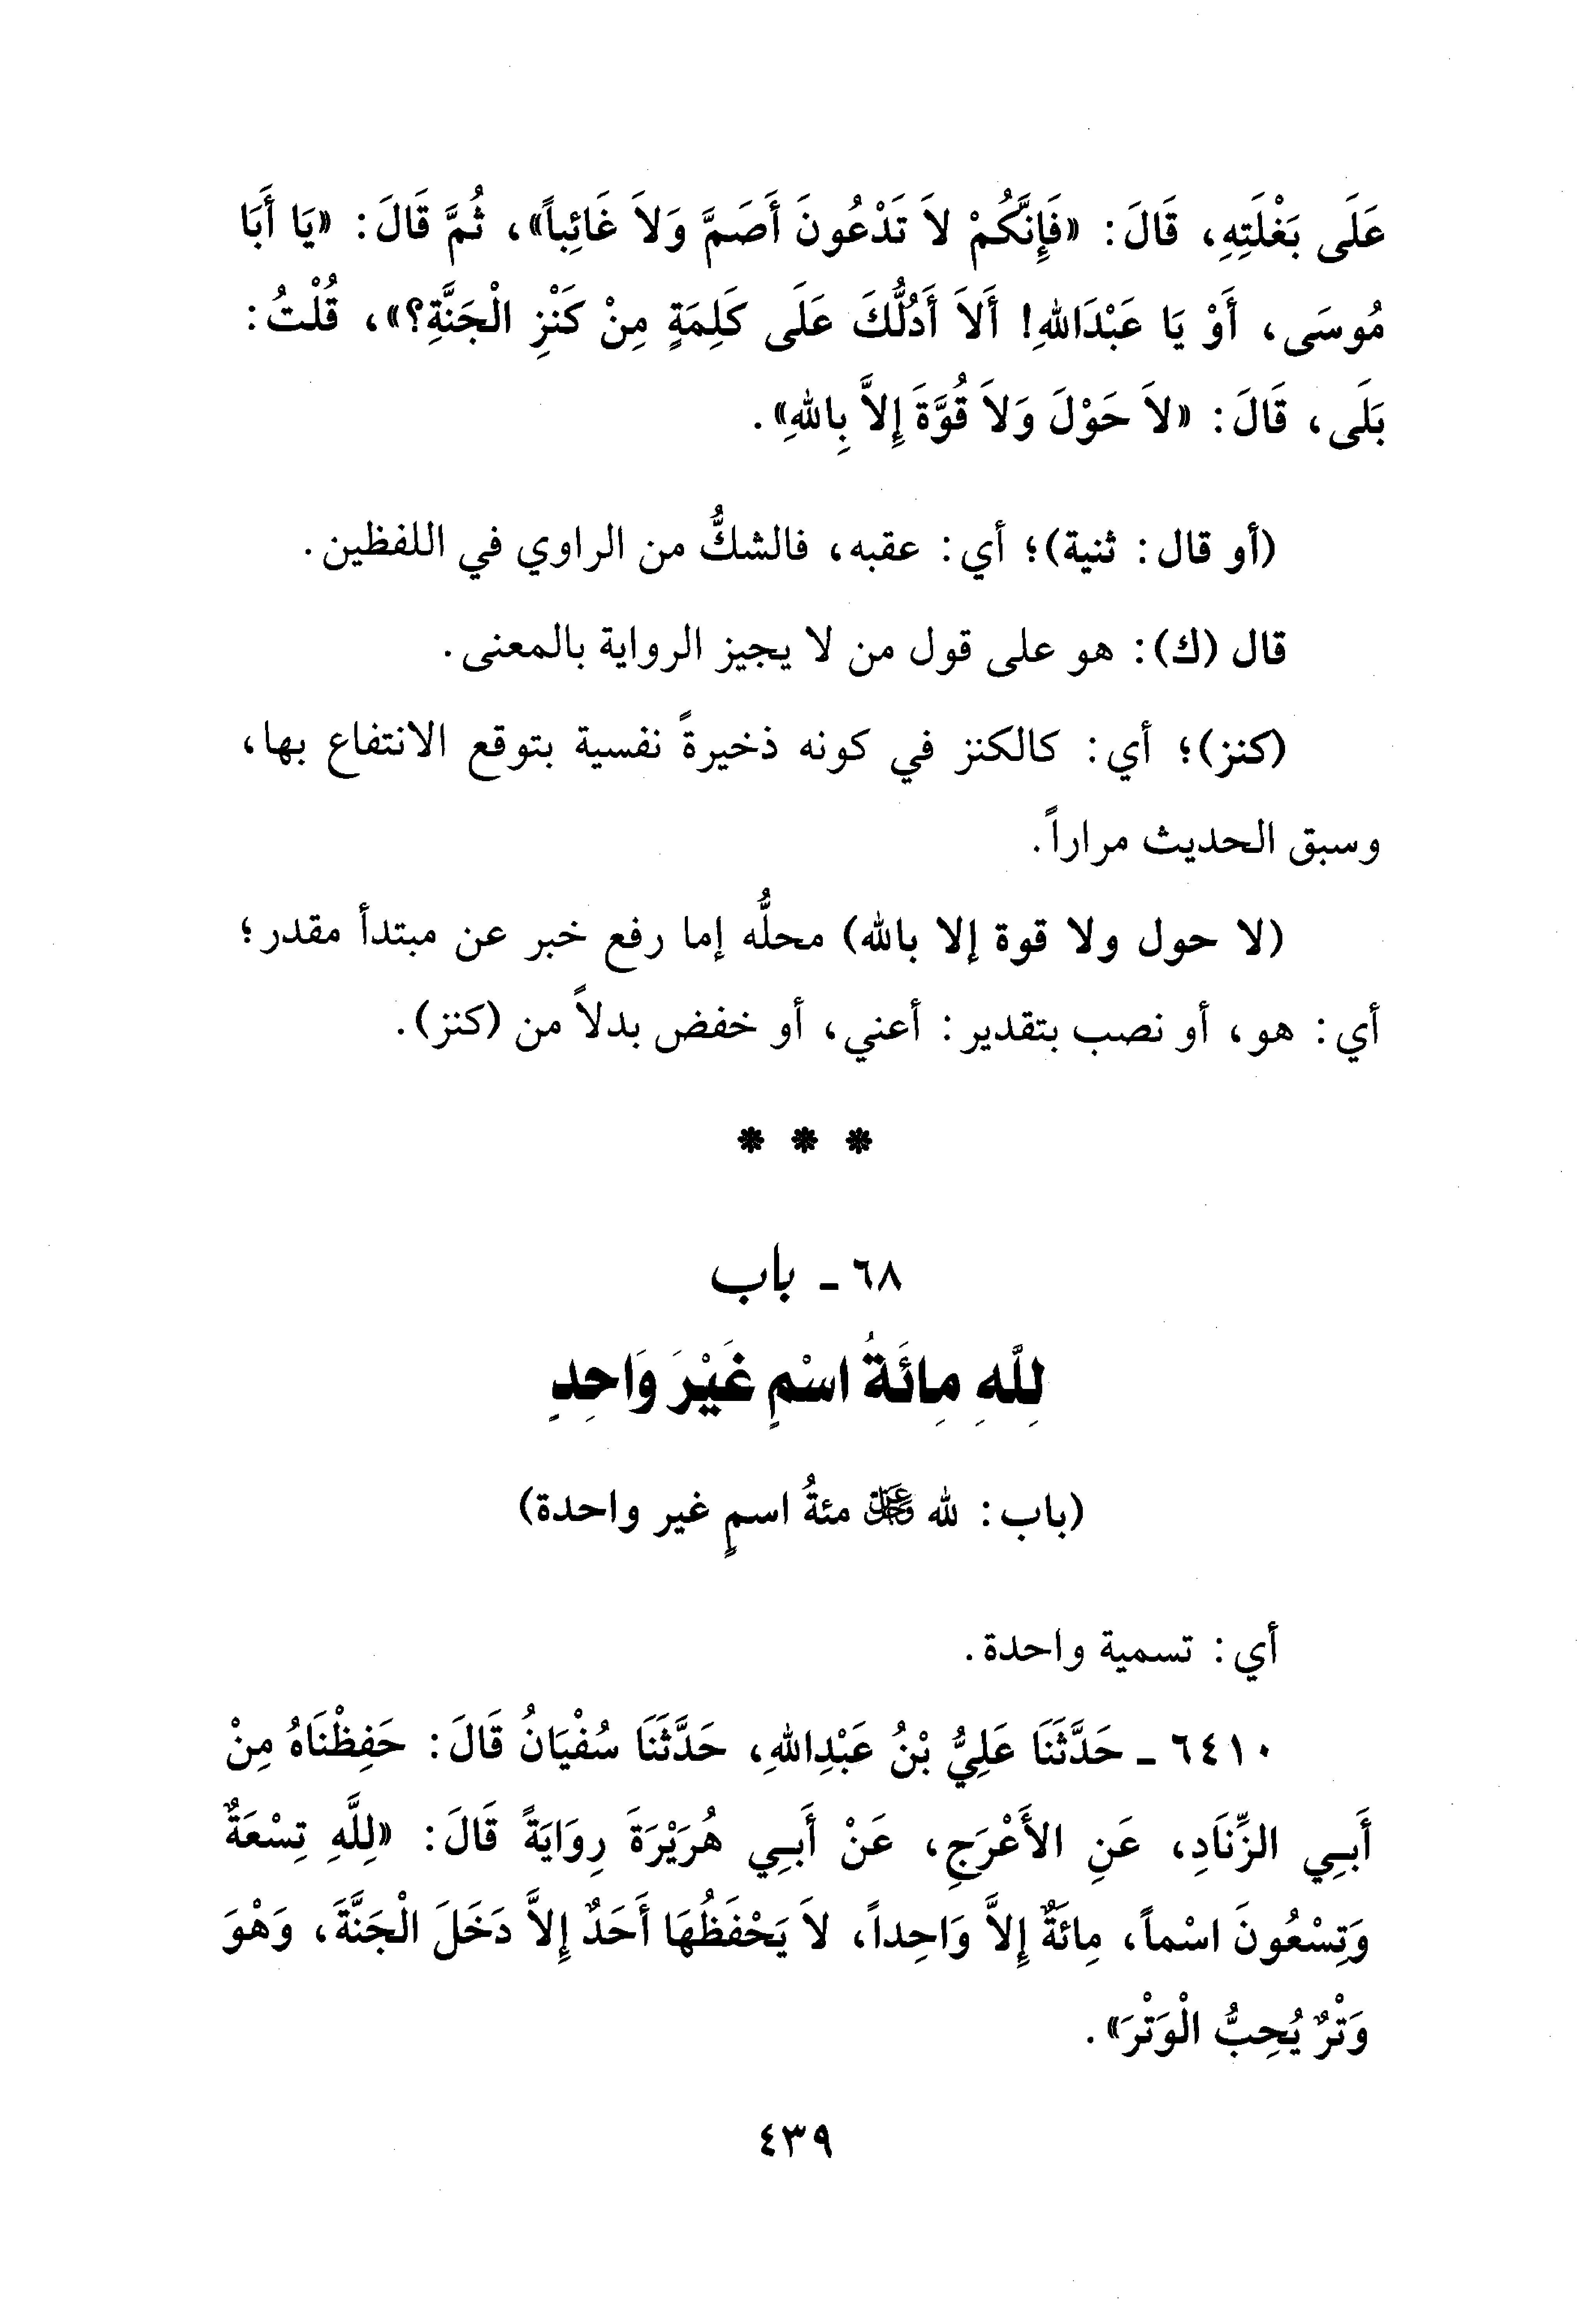 عَلَى بَغْلَتِهِ، قَالَ: «فَإِنَّكُمْ لاَ تَدْعُونَ أَصَمَّ وَلاَ غَائِباً»، ثُمَّ قَالَ: «يَا أَبَا
مُوسَى، أَوْ يَا عَبْدَاللهِ! أَلاَ أَدُلُّكَ عَلَى كَلِمَةٍ مِنْ كَنْزِ الْجَنَّةِ؟»، قُلْتُ:
بَلَى، قَالَ: «لاَ حَوْلَ وَلاَ قُوَّةَ إِلاَّ بِاللهِ».
(أو قال: ثنية)؛ أي: عقبه، فالشكُّ من الراوي في اللفظين.
قال (ك): هو على قول من لا يجيز الرواية بالمعنى.
(كنز)؛ أي: كالكنز في كونه ذخيرةً نفسية بتوقع الانتفاع بها،
وسبق الحديث مراراً.
(لا حول ولا قوة إلا بالله) محلُّه إما رفع خبر عن مبتدأ مقدر؛
أي: هو، أو نصب بتقدير: أعني، أو خفض بدلاً من (كنز).
* * *
٦٨ - باب
لِلَّهِ مِائَةُ اسْمٍ غَيْرَ وَاحِدٍ
(باب: لله عَزَّ وَجَلَّ مئةُ اسمٍ غير واحدة)
أي: تسمية واحدة.
٦٤١٠ - حَدَّثَنَا عَلِيُّ بْنُ عَبْدِاللهِ، حَدَّثَنَا سُفْيَانُ قَالَ: حَفِظْنَاهُ مِنْ
أَبِي الزِّنَادِ، عَنِ الأَعْرَجِ، عَنْ أَبِي هُرَيْرَةَ رِوَايَةً قَالَ: «لِلَّهِ تِسْعَةٌ
وَتِسْعُونَ اسْماً، مِائَةٌ إِلاَّ وَاحِداً، لاَ يَحْفَظُهَا أَحَدٌ إِلاَّ دَخَلَ الْجَنَّةَ، وَهْوَ
وَتْرٌ يُحِبُّ الْوَتْرَ».
٤٣٩